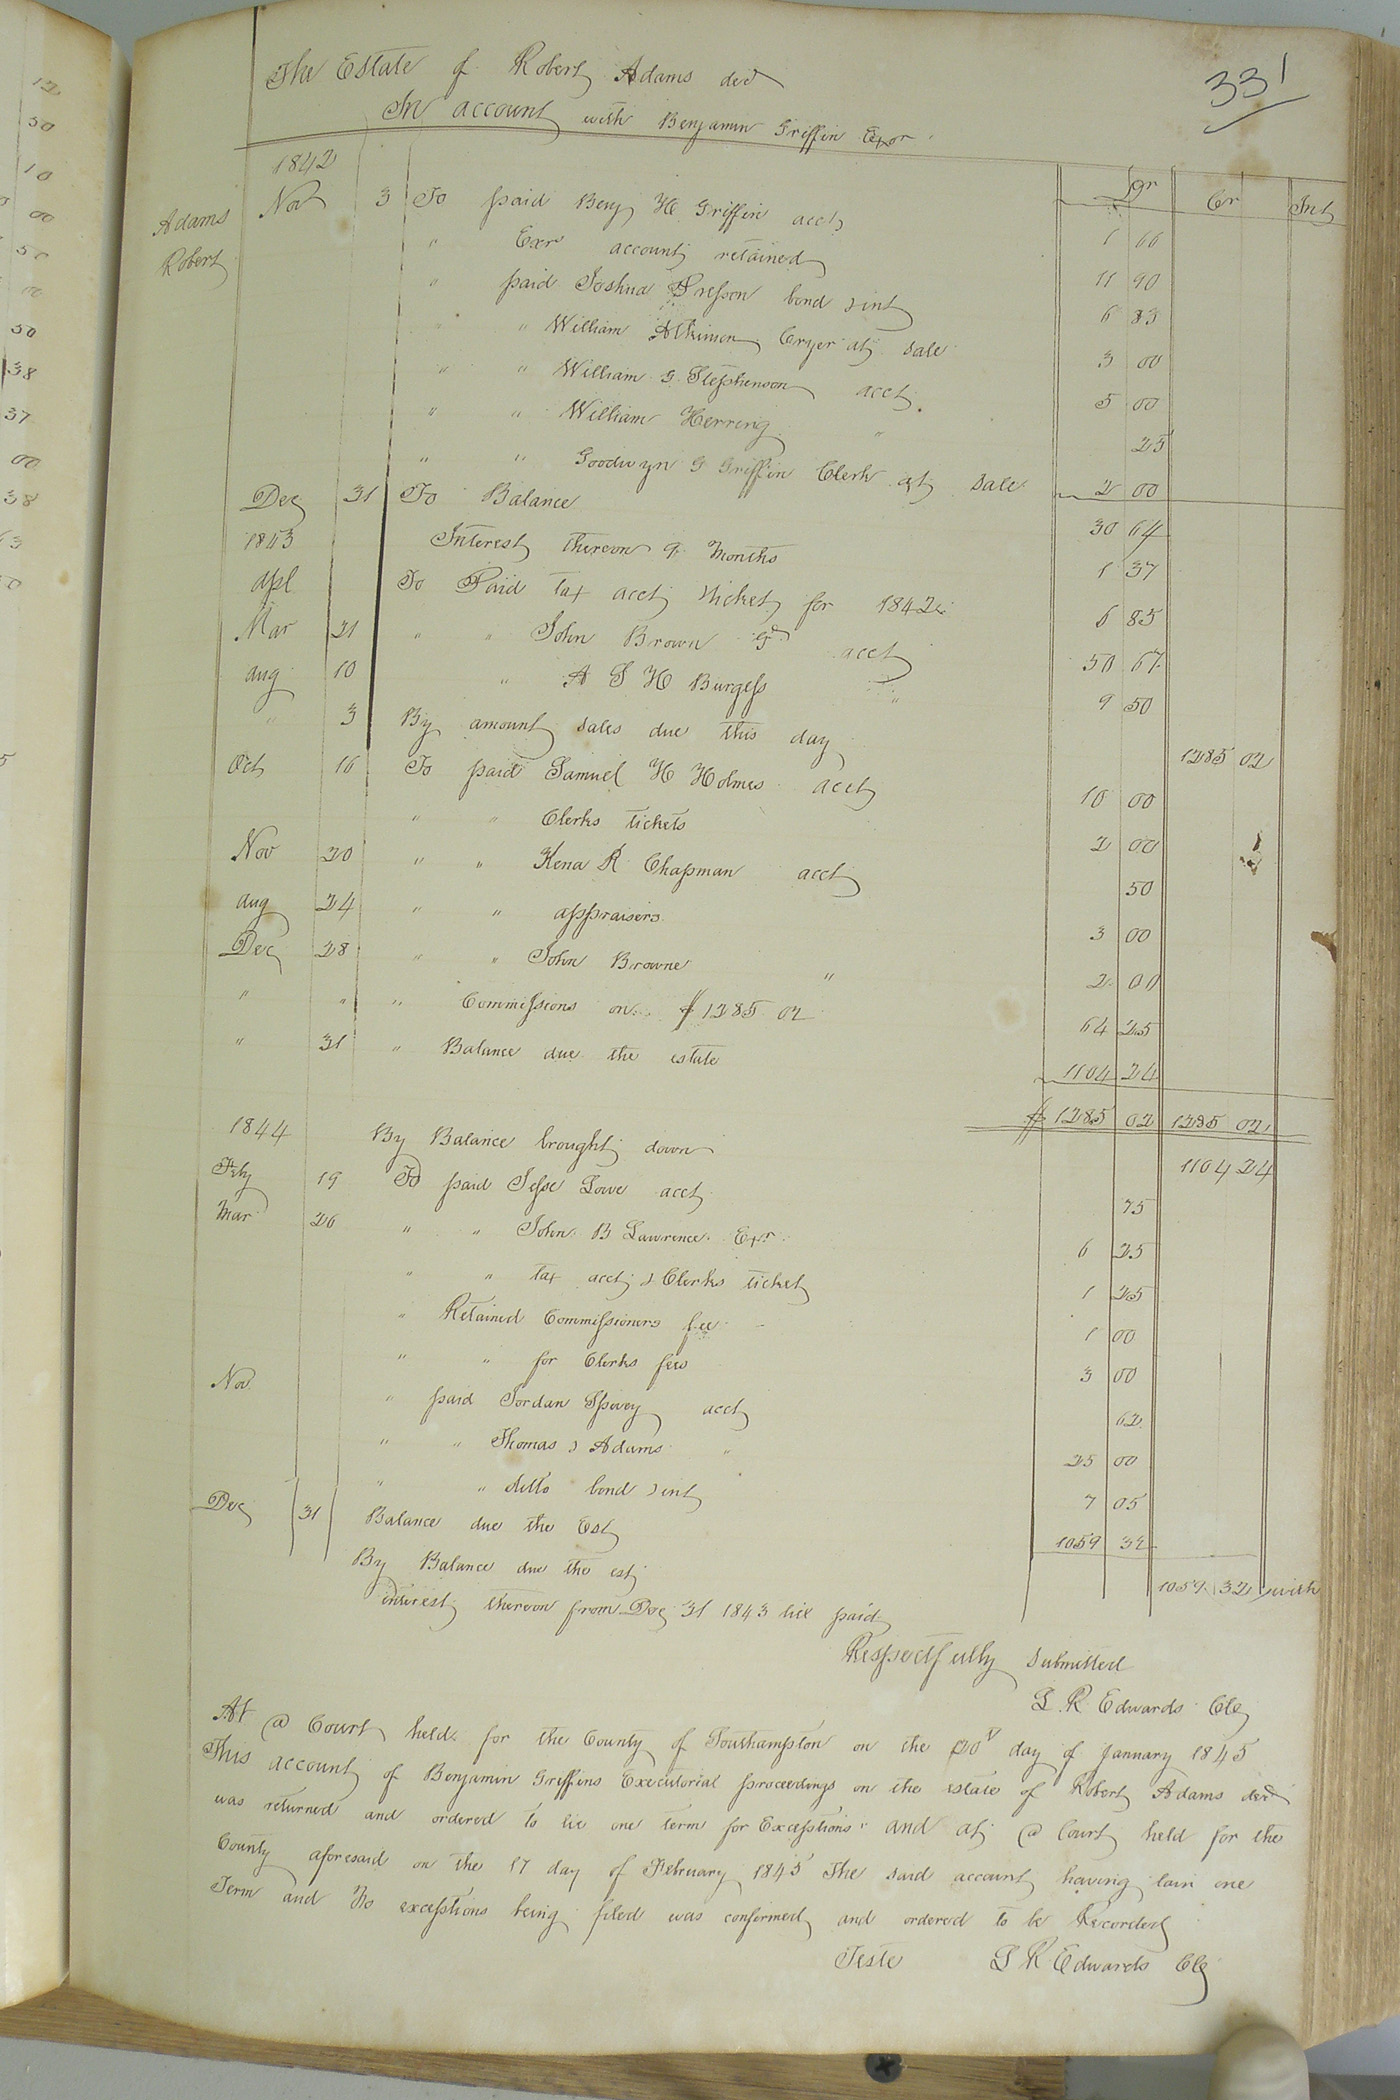 331
The Estate of Robert Adams decd
In account with Benjamin Griffin Exor
Dr Cr Int
Adams
Robert
1842
Nov 3 To paid Benj H Griffin acct 1 66
" Exr account retained 11 90
" paid Joshua Presson bond & int 6 83
" " William Atkinson Cryer at sale 3 00
" " William G. Stephenson acct. 5 00
" " William Herring " 25
" " Goodwyn G Griffin Clerk at sale 2 00
Dec 31 To Balance 30 64
1843 Interest thereon 9 Months 1 37
Apl To Paid tax acct & ticket for 1842 6 85
Mar 21 " " John Brown Gd acct 50 67
Aug 10 " A S H Burgess " 9 50
" 3 By amount sales due this day 1285 02
Oct 16 To paid Samuel H Holmes acct 10 00
" " Clerks tickets 2 00
Nov 20 " " Kena R Chapman acct 50
Aug 24 " " appraisers 3 00
Dec 28 " " John Browne " 2 00
" " " Commissions on $1285 02 64 25
" 31 " Balance due the estate 1104 24
$ 1285 02 1285 02
1844 By Balance brought down 1104 24
Feby 19 To paid Jesse Lowe acct 75
Mar 26 " " John B Lawrence Exr 6 25
" " tax acct & Clerks ticket 1 25
" Retained Commissioners fee 1 00
" " for Clerks fees 3 00
Nov " paid Jordan Spivey acct 62
" " Thomas J Adams " 25 00
" " ditto bond & int 7 05
Dec 31 Balance due the Est 1059 32
By Balance due the est 1059 32 with
interest thereon from Dec 31 1843 till paid
Respectfully submitted
L R Edwards Clk
At a Court held for the County of Southampton on the 20th day of January 1845
This account of Benjamin Griffins Executorial proceedings on the estate of Robert Adams decd
was returned and ordered to lie one term for Exceptions and at a Court held for the
County aforesaid on the 17 day of February 1845 The said account having lain one
Term and No exceptions being filed was confirmed and ordered to be Recorded
Teste L R Edwards Clk